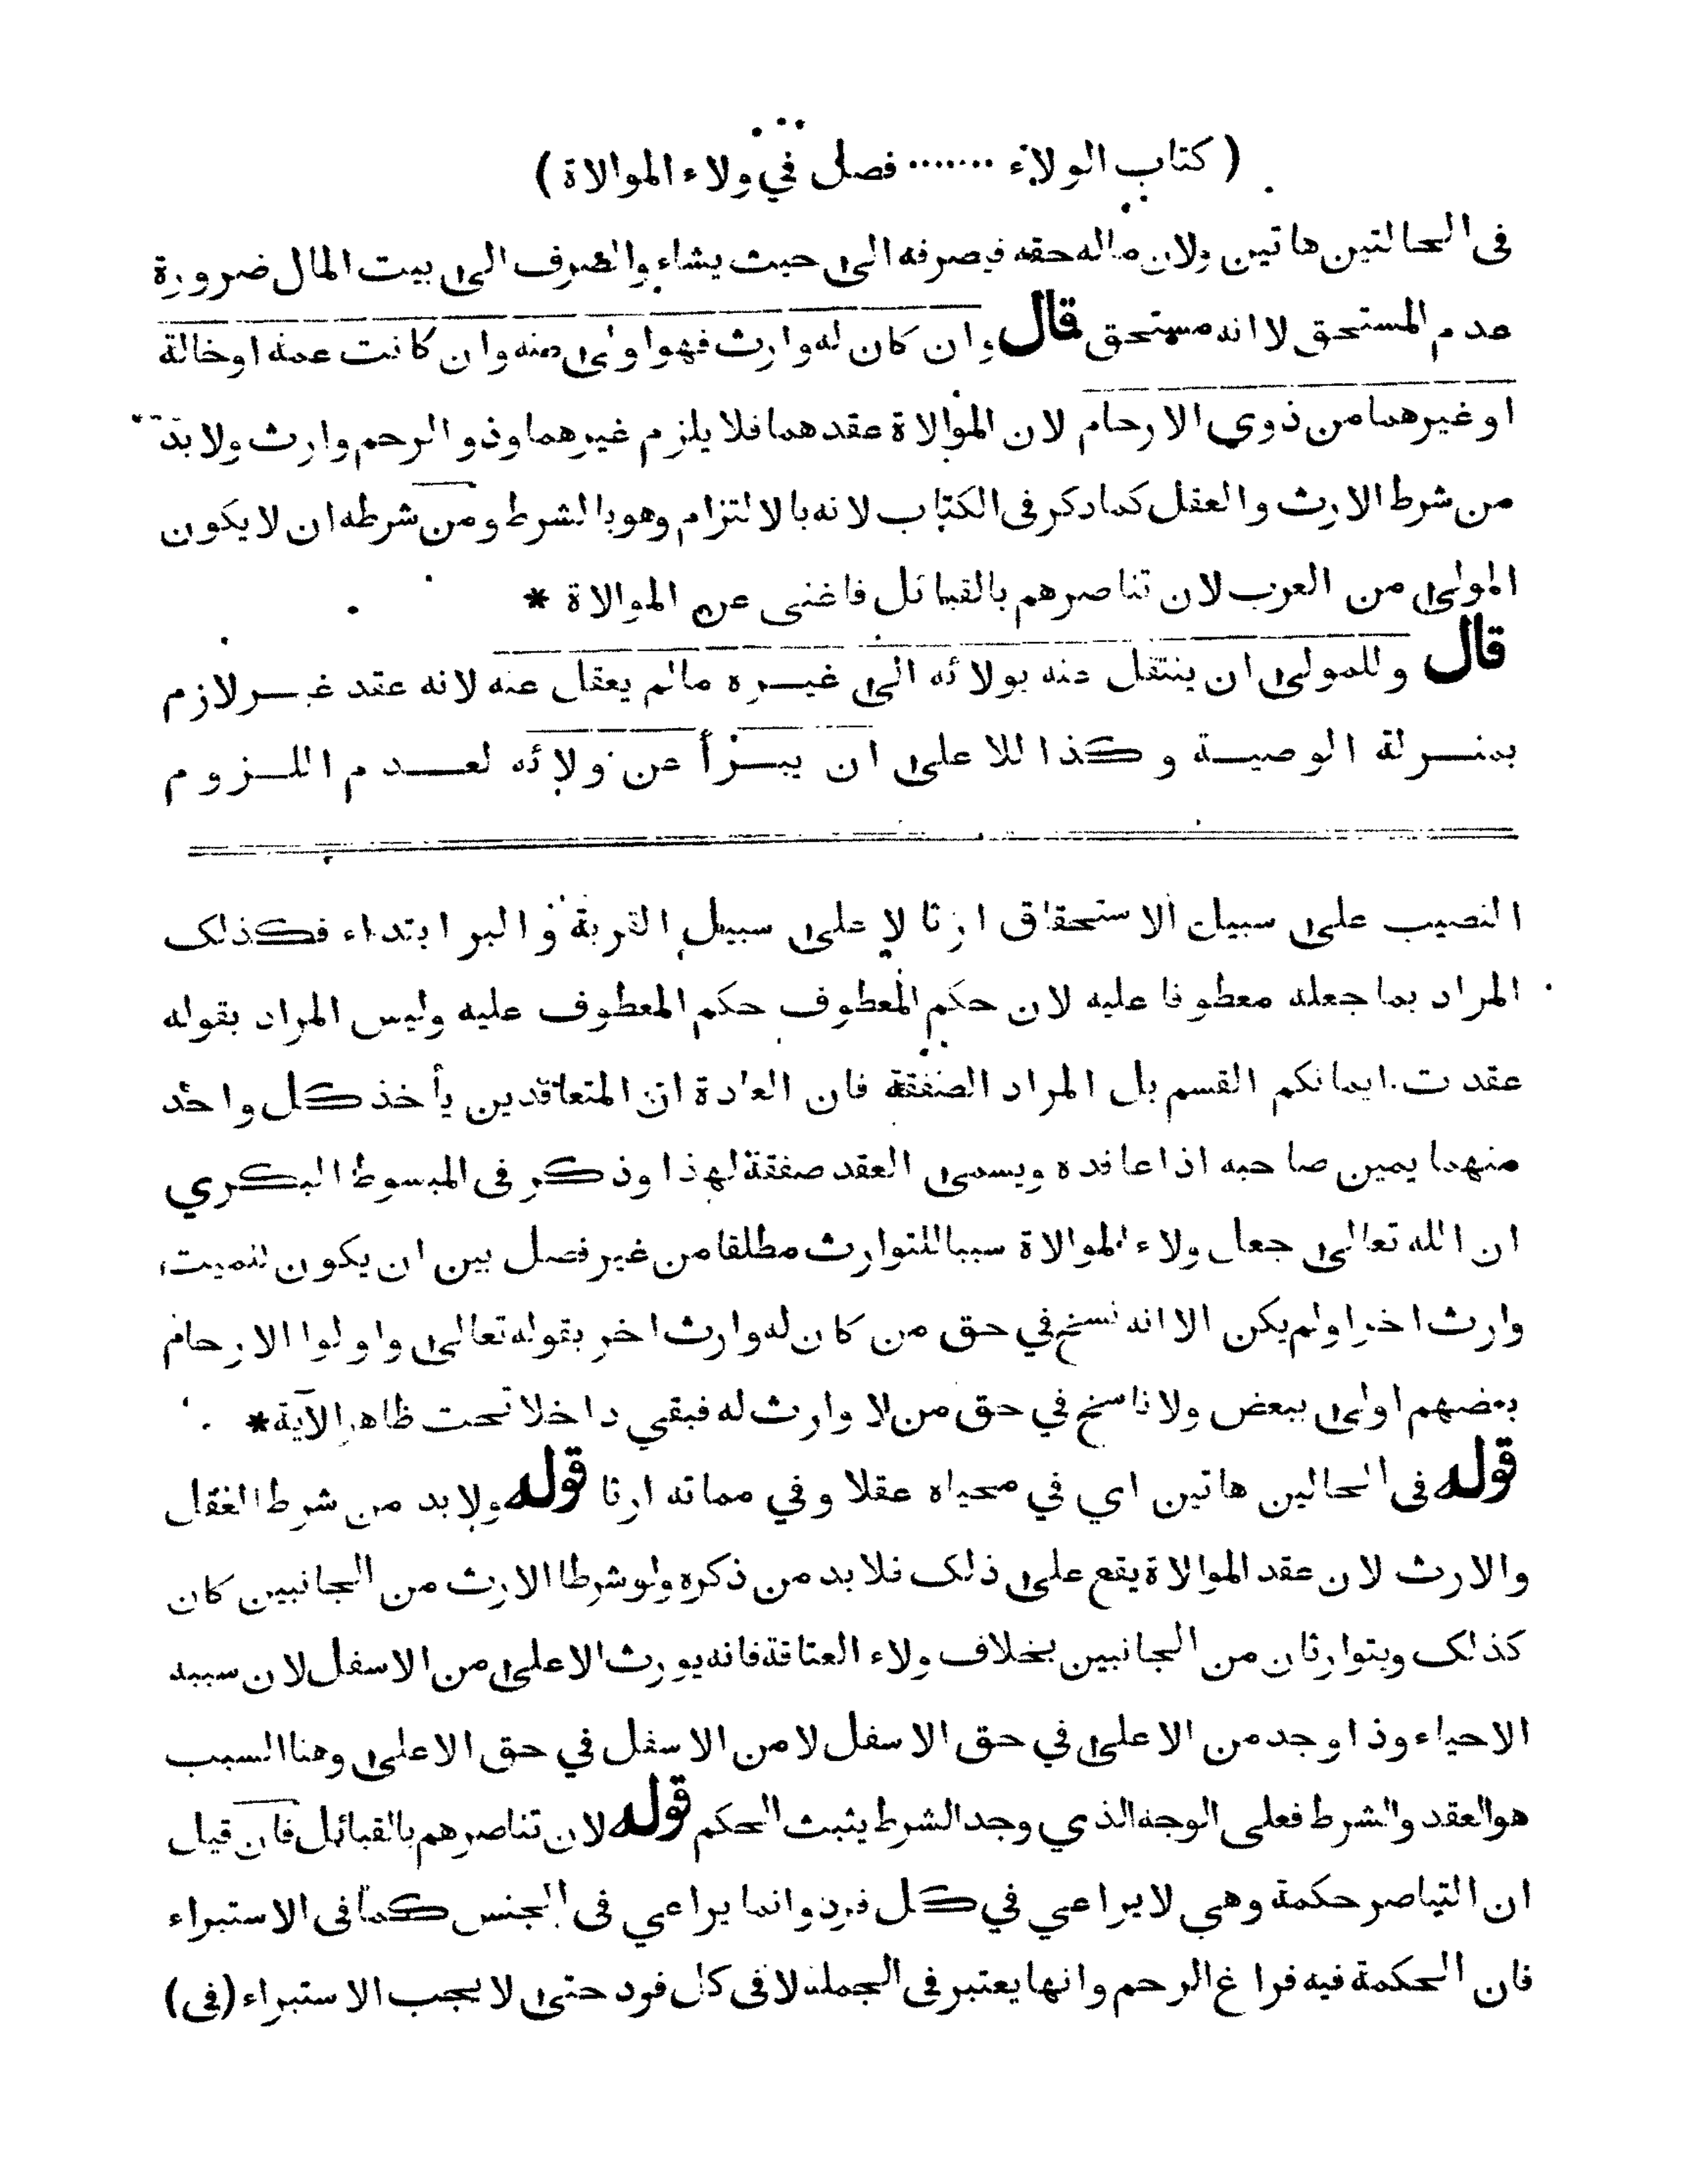 ( كتاب الولاء ....... فصل في ولاء الموالاة )
فى الحالتين هاتين ولان ماله حقه فيصرفه الى حيث يشاء والصرف الى بيت المال ضرورة
عدم المستحق لا انه مستحق قال وان كان له وارث فهو اولى منه وان كانت عمة او خالة
او غيرهما من ذوي الارحام لان الموالاة عقدهما فلا يلزم غيرهما وذو الرحم وارث ولا بد
من شرط الارث والعقل كما ذكر فى الكتاب لانه بالالتزام وهو بالشرط ومن شرطه ان لا يكون
المولى من العرب لان تناصرهم بالقبائل فاغنى عن الموالاة *
قال وللمولى ان ينتقل عنه بولائه الى غيره مالم يعقل عنه لانه عقد غير لازم
بمنزلة الوصية وكذا للاعلى ان يبرأ عن ولائه لعدم اللزوم
النصيب على سبيل الاستحقاق ارثا لا على سبيل القربة والبر ابتداء فكذلك
المراد بما جعله معطوفا عليه لان حكم المعطوف حكم المعطوف عليه وليس المراد بقوله
عقدت ايمانكم القسم بل المراد الصفقة فان العادة ان المتعاقدين يأخذ كل واحد
منهما يمين صاحبه اذا عاقده ويسمى العقد صفقة لهذا وذكر فى المبسوط البكري
ان الله تعالى جعل ولاء الموالاة سببا للتوارث مطلقا من غير فصل بين ان يكون للميت
وارث اخر اولم يكن الا انه نسخ في حق من كان له وارث اخر بقوله تعالى واولوا الارحام
بعضهم اولى ببعض ولا ناسخ في حق من لا وارث له فبقي داخلا تحت ظاهر الآية *
قوله فى الحالين هاتين اي في محياه عقلا وفي مماته ارثا قوله ولا بد من شرط العقل
والارث لان عقد الموالاة يقع على ذلك فلا بد من ذكره ولو شرطا الارث من الجانبين كان
كذلك ويتوارثان من الجانبين بخلاف ولاء العتاقة فانه يورث الاعلى من الاسفل لان سببه
الاحياء وذا وجد من الاعلى في حق الاسفل لا من الاسفل في حق الاعلى وهنا السبب
هو العقد والشرط فعلى الوجه الذي وجد الشرط يثبت الحكم قوله لان تناصرهم بالقبائل فان قيل
ان التناصر حكمة وهي لا يراعي في كل فرد وانما يراعي فى الجنس كما فى الاستبراء
فان الحكمة فيه فراغ الرحم وانها يعتبر فى الجملة لا فى كل فرد حتى لا يجب الاستبراء (فى)